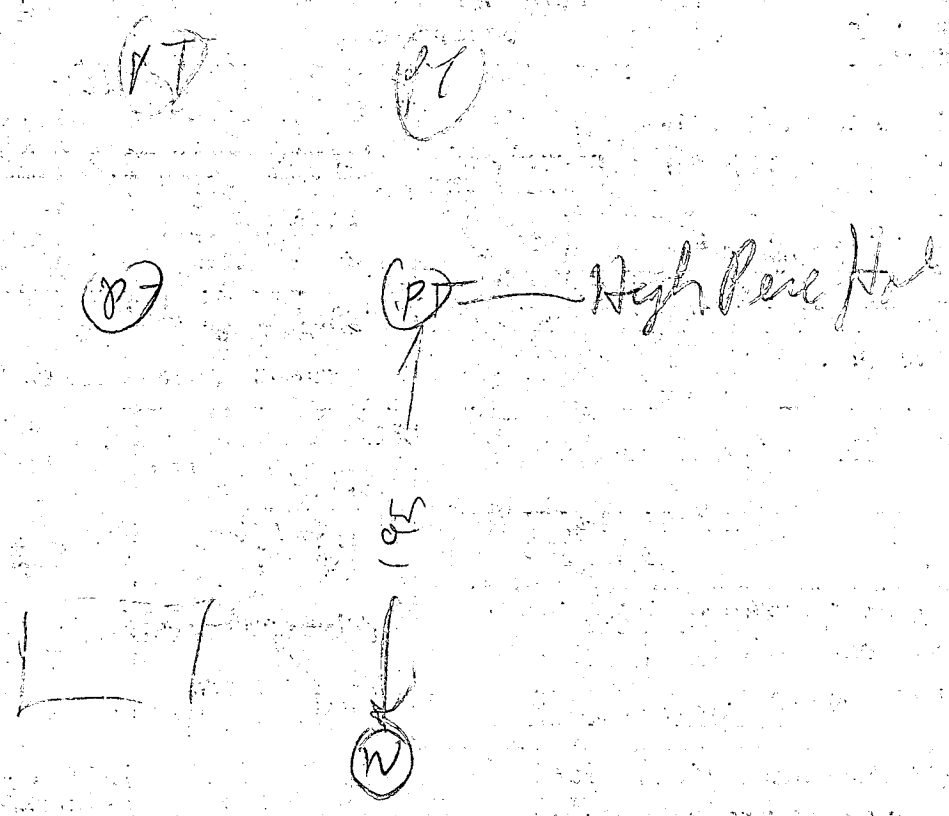 P.T P.T
P.T P.T High Perc Hol
195
W